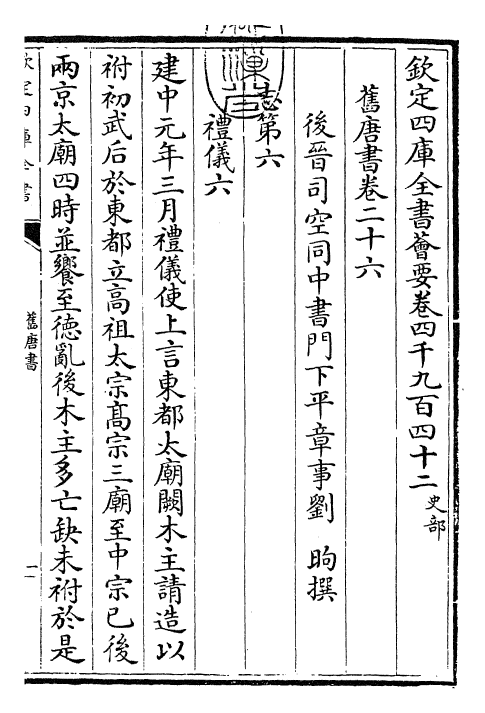 欽定四庫全書薈要卷四千九百四十二 史部
舊唐書卷二十六
後晉司空同中書門下平章事劉 昫撰
志第六
禮儀六
建中元年三月禮儀使上言東都太廟闕木主請造以
祔初武后於東都立高祖太宗高宗三廟至中宗已後
兩京太廟四時並饗至德亂後木主多亡缺未祔於是
欽定四庫全書
舊唐書
一